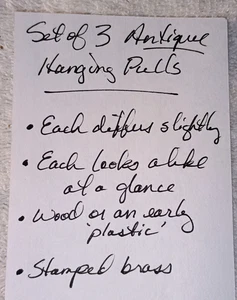 Set of 3 Antique
Hanging Pulls
• Each differs slightly
• Each looks alike
at a glance
• Wood or an early
'plastic'
• Stamped brass